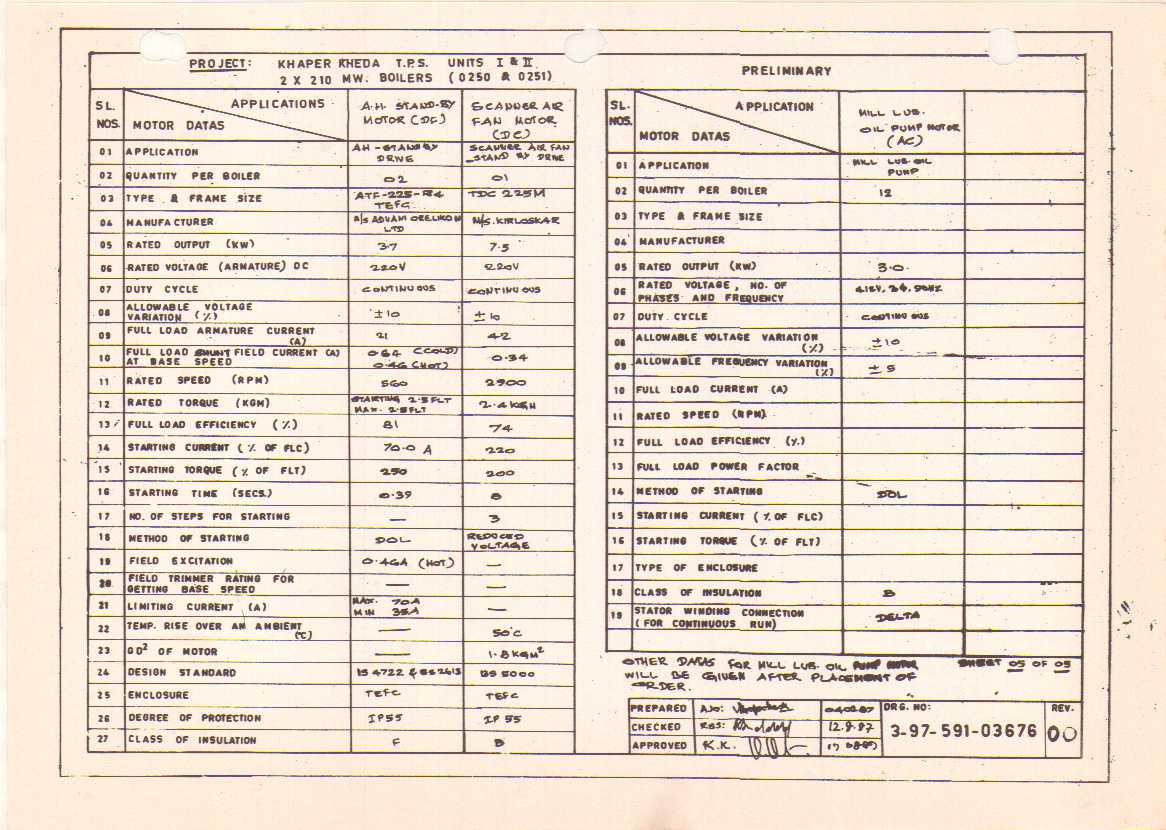 PROJECT: KHAPER KHEDA T.P.S. UNITS I & II
2 X 210 MW. BOILERS (0250 & 0251)
PRELIMINARY
SL. NOS. APPLICATIONS MOTOR DATAS A.H. STAND-BY MOTOR (DC) SCANNER AIR FAN MOTOR (DC)
01 APPLICATION AH - STAND BY DRIVE SCANNER AIR FAN STAND BY DRIVE
02 QUANTITY PER BOILER 02 01
03 TYPE & FRAME SIZE TEFC TDC 225M
04 MANUFACTURER M/S ADVANI ORELIKON LTD M/S. KIRLOSKAR
05 RATED OUTPUT (KW) 3.7 7.5
06 RATED VOLTAGE (ARMATURE) DC 220V 220V
07 DUTY CYCLE CONTINUOUS CONTINUOUS
08 ALLOWABLE VOLTAGE VARIATION (%) ±10 ±10
09 FULL LOAD ARMATURE CURRENT (A) 21 42
10 FULL LOAD SHUNT FIELD CURRENT (A) AT BASE SPEED 0.64 (COLD) 0.46 (HOT) 0.34
11 RATED SPEED (RPM) 560 2900
12 RATED TORQUE (KGM) STARTING 2.5 FLT MAX. 2.5 FLT 2.4 KGM
13 FULL LOAD EFFICIENCY (%) 81 74
14 STARTING CURRENT (% OF FLC) 70.0 A 220
15 STARTING TORQUE (% OF FLT) 250 200
16 STARTING TIME (SECS.) 0.39 8
17 NO. OF STEPS FOR STARTING — 3
18 METHOD OF STARTING DOL REDUCED VOLTAGE
19 FIELD EXCITATION 0.46A (HOT) —
20 FIELD TRIMMER RATING FOR GETTING BASE SPEED — —
21 LIMITING CURRENT (A) MAX. 70A MIN 35A —
22 TEMP. RISE OVER AN AMBIENT (°C) — 50°C
23 GD² OF MOTOR — 1.8 KGM²
24 DESIGN STANDARD IS 4722 & BS 2613 BS 5000
25 ENCLOSURE TEFC TEFC
26 DEGREE OF PROTECTION IP55 IP 55
27 CLASS OF INSULATION F B
SL. NOS. APPLICATION MOTOR DATAS MILL LUB. OIL PUMP MOTOR (AC)
01 APPLICATION MILL LUB. OIL PUMP
02 QUANTITY PER BOILER 12
03 TYPE & FRAME SIZE
04 MANUFACTURER
05 RATED OUTPUT (KW) 3.0
06 RATED VOLTAGE, NO. OF PHASES AND FREQUENCY 415V, 3Φ, 50HZ
07 DUTY CYCLE CONTINUOUS
08 ALLOWABLE VOLTAGE VARIATION (%) ±10
09 ALLOWABLE FREQUENCY VARIATION (%) ±5
10 FULL LOAD CURRENT (A)
11 RATED SPEED (RPM)
12 FULL LOAD EFFICIENCY (%)
13 FULL LOAD POWER FACTOR
14 METHOD OF STARTING DOL
15 STARTING CURRENT (% OF FLC)
16 STARTING TORQUE (% OF FLT)
17 TYPE OF ENCLOSURE
18 CLASS OF INSULATION B
19 STATOR WINDING CONNECTION (FOR CONTINUOUS RUN) DELTA
OTHER DATAS FOR MILL LUB. OIL PUMP MOTOR
WILL BE GIVEN AFTER PLACEMENT OF
ORDER.
SHEET 05 OF 05
PREPARED
CHECKED RBS: 12.8.87
APPROVED K.K.
DRG. NO: 3-97-591-03676
REV. 00